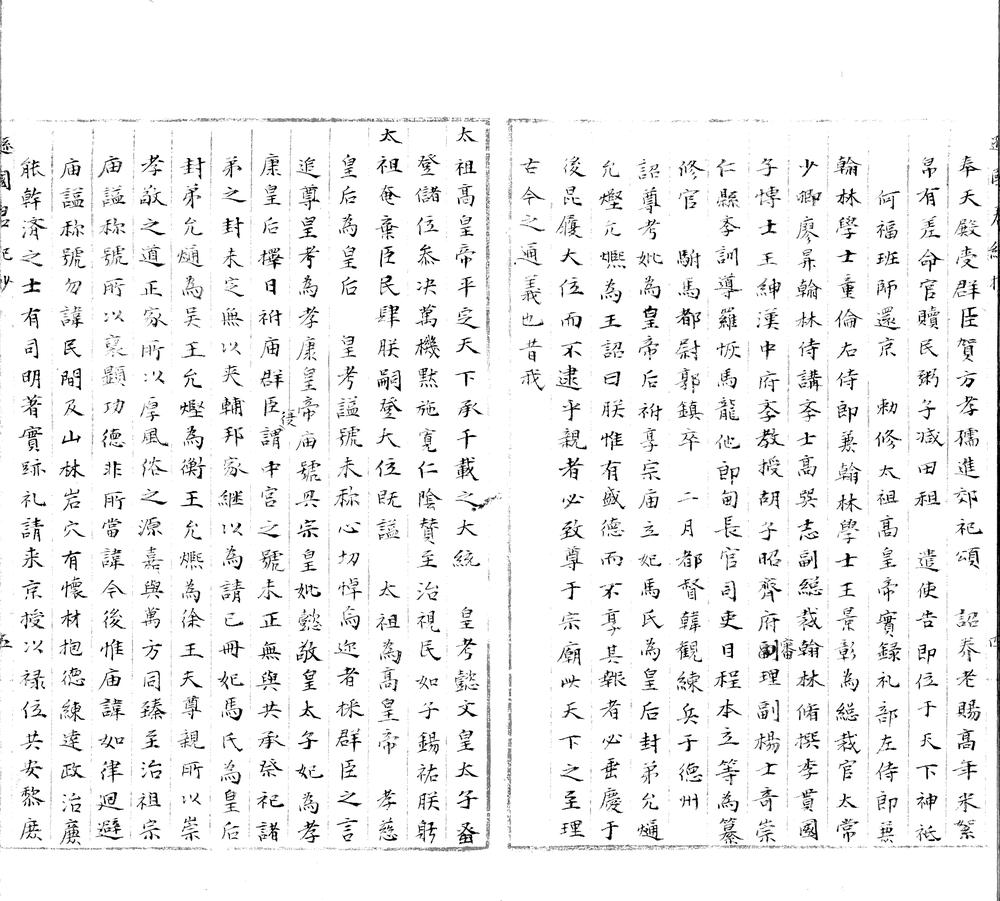 奉天殿受群臣賀方孝孺進郊祀頌　詔養老賜高年米絮
帛有差命官贖民鬻子减田租　遣使告即位于天下神祗
何福班師還京　勅修太祖高皇帝實録礼部左侍郎兼
翰林學士董倫右侍郎兼翰林學士王景彰為緫裁官太常
少卿廖昇翰林侍講李士高巽志副緫裁翰林脩撰李貫國
子博士王紳漢中府李教授胡子昭齊府審理副楊士奇崇
仁縣李訓導羅恢馬龍他郎甸長官司吏目程本立等為纂
修官　駙馬都尉郭鎮卒　二月都督韓觀練兵于德州
詔尊考妣為皇帝后祔享宗庙立妃馬氏為皇后封弟允熥
允熞允熈為王詔曰朕惟有盛德而不享其報者必垂慶于
後昆履大位而不逮乎親者必致尊于宗廟此天下之至理
古今之通義也昔我
太祖高皇帝平定天下承千載之大統　皇考懿文皇太子蚤
登儲位叅决萬機黙施寬仁陰賛至治視民如子錫祐朕躬
太祖奄棄臣民肆朕嗣登大位既謚　太祖為高皇帝　孝慈
皇后為皇后　皇考謚號未称心切悼焉迩者採群臣之言
追尊皇考為孝康皇帝庙號具宗皇妣懿敬皇太子妃為孝
康皇后擇日祔庙群臣復謂中宮之號未正無與共承祭祀諸
弟之封未定無以夾輔邦家継以為請已冊妃馬氏為皇后
封弟允熥為吴王允熞為衡王允熈為徐王夫尊親所以崇
孝敬之道正家所以厚風俗之源嘉與萬方同臻至治祖宗
庙謚称號所以褒顯功德非所當諱今後惟庙諱如律廻避
庙謚称號勿諱民間及山林岩穴有懷材抱德練達政治廉
能幹濟之士有司明著實跡礼請来京授以禄位共安黎庶
五